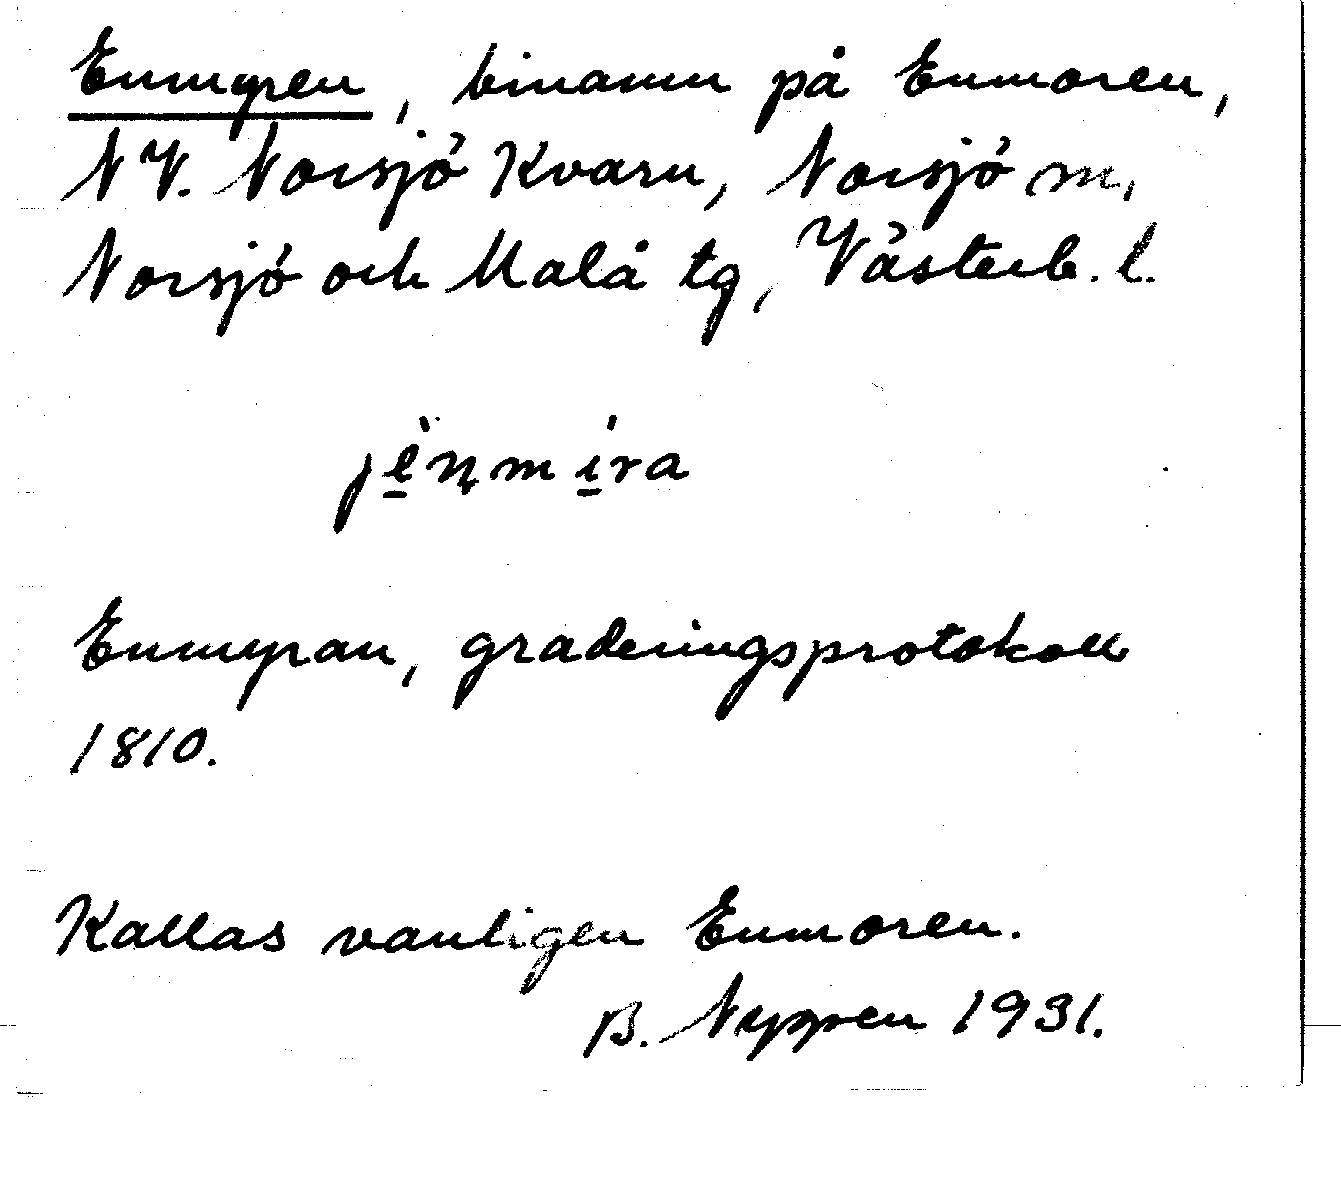 Enmyren, binamn på Enmoren,
NV. Norsjö Kvarn, Norsjö sn,
Norsjö och Malå tg, Västerb. l.
Enmyran, graderingsprotokoll
1810.
Kallas vanligen Enmoren.
B. Nygren 1931.